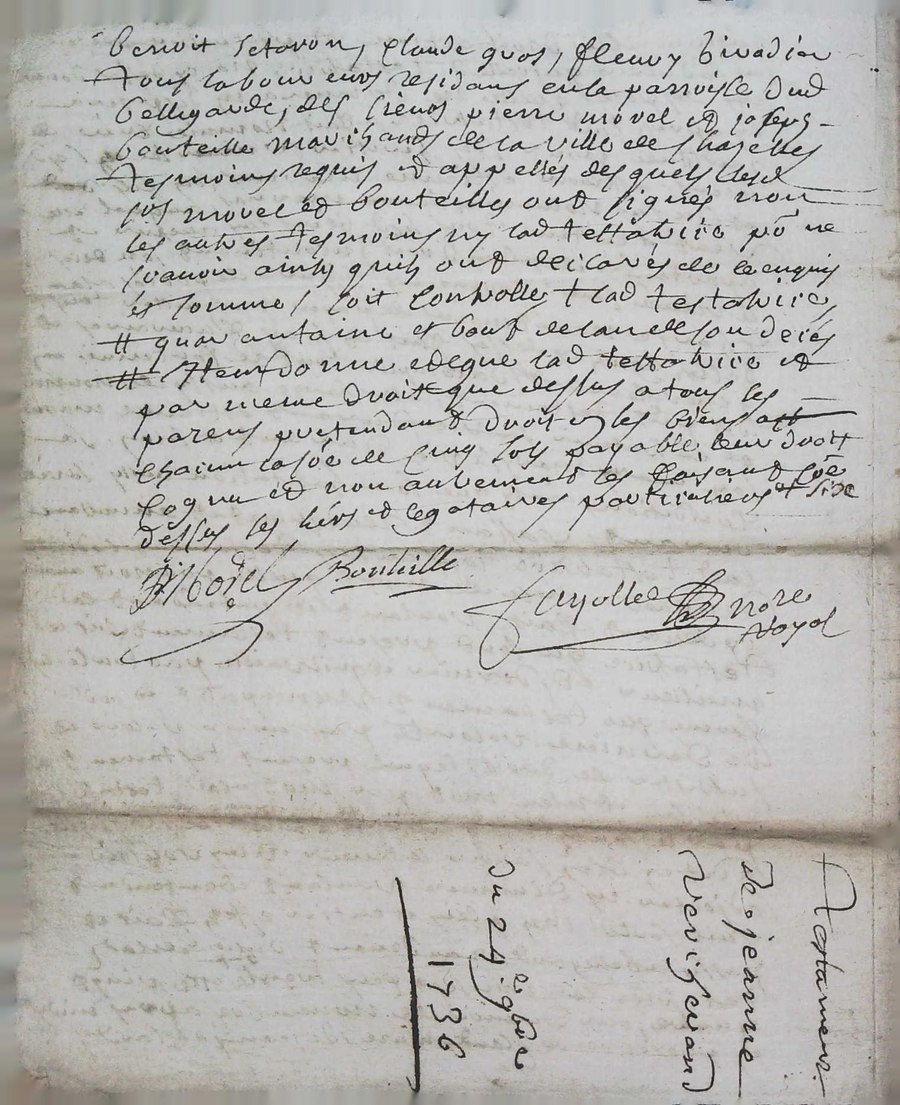 benoit claude fleury
tous laboureurs residans en la parroisse dud
bellegarde, des sieurs pierre morel et joseph
bouteille marchands de la ville de chazelles
tesmoins requis et appellés desquels lesd
srs morel et bouteilles ont signés non
les autres tesmoins ny lad testatrice po ne
scavoir ainsy quils ont declarés de ce enquis
et sommes soit controlle lad testatrice
# quarantaine et bout de lan de son deces
# Item donne et legue lad testatrice et
par meme droit que dessus a tous les
parens pretendant droit en ses biens
chacun la soe de cinq sols payable leur droit
cognu et non autrement les faisant coe
dessus ses hers et legataires particuliers
Morel Bouteille
fayolle nore
Royal
Testament
De jeanne
Vericherand
du 24e 9bre
1736